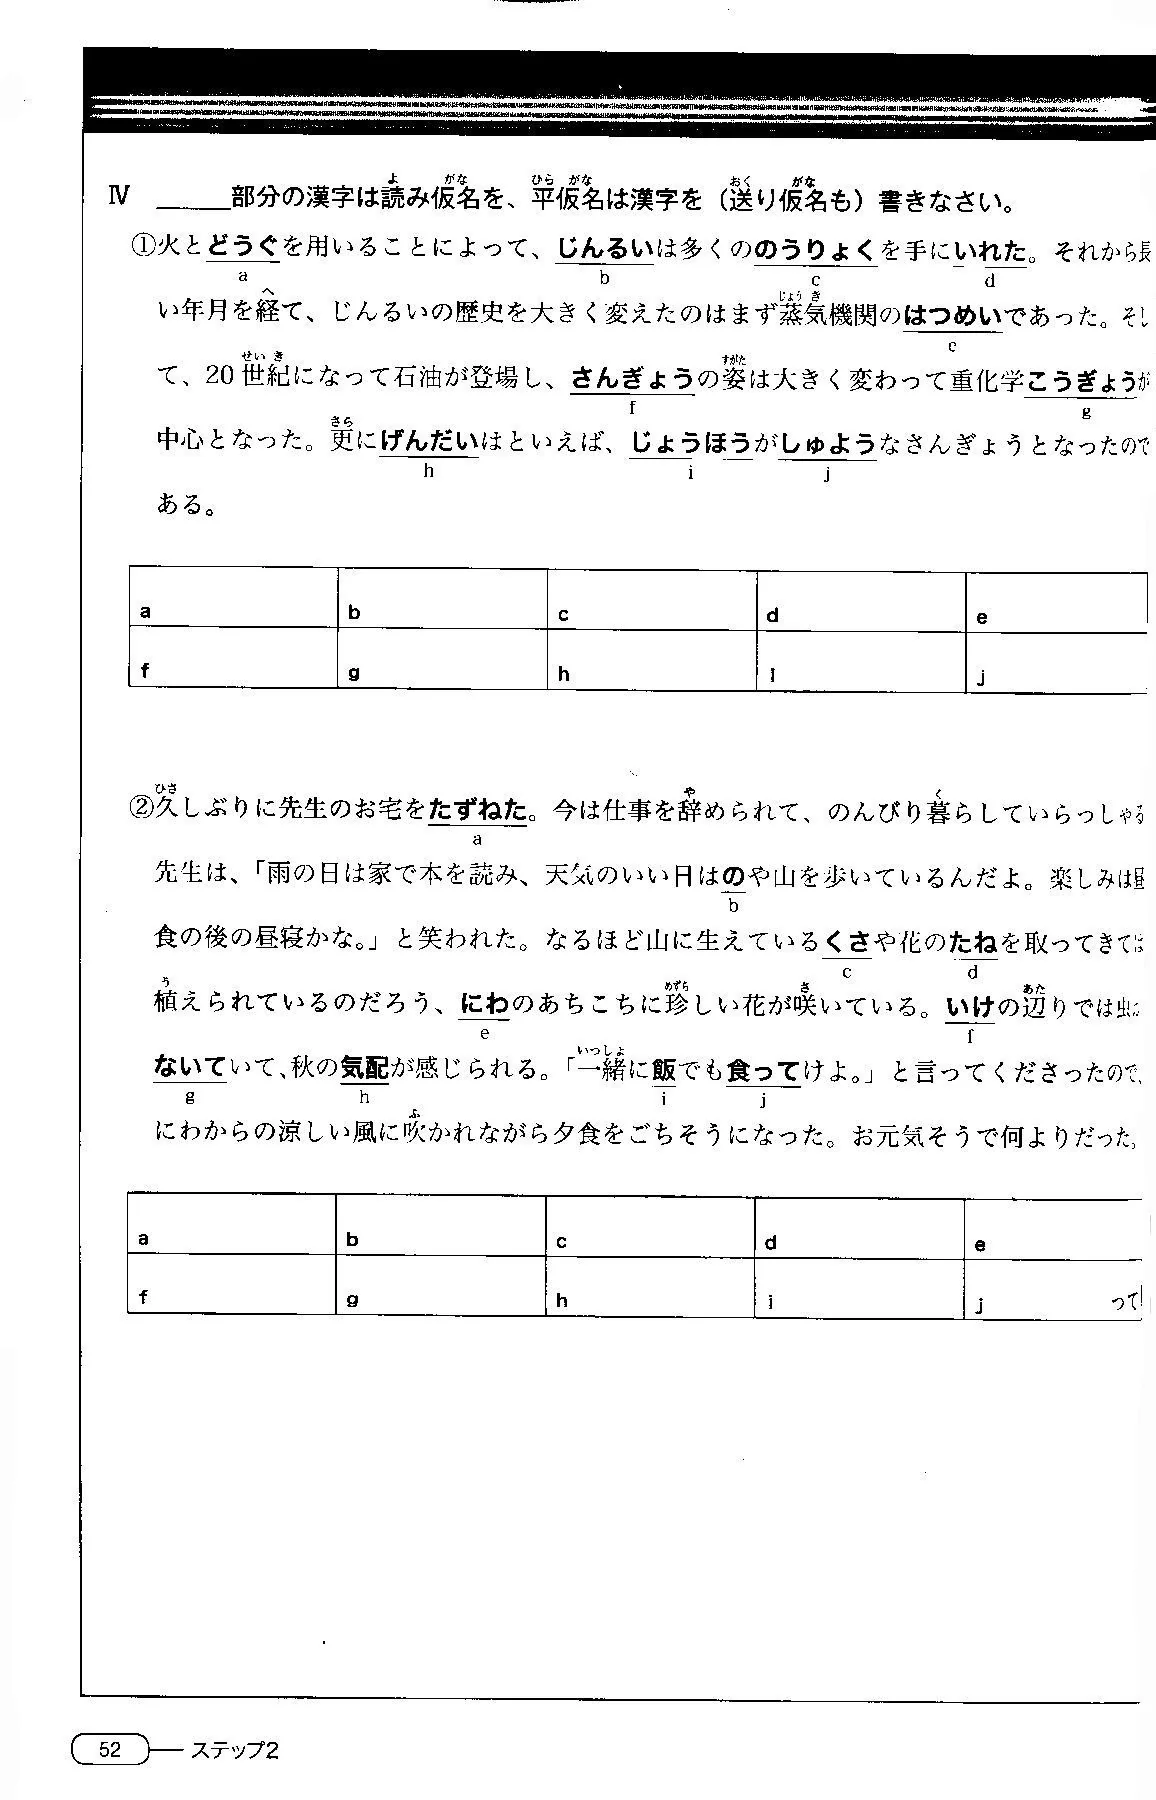 Ⅳ ＿＿＿部分の漢字は読み仮名を、平仮名は漢字を（送り仮名も）書きなさい。
①火とどうぐを用いることによって、じんるいは多くののうりょくを手にいれた。それから長
い年月を経て、じんるいの歴史を大きく変えたのはまず蒸気機関のはつめいであった。そし
て、20世紀になって石油が登場し、さんぎょうの姿は大きく変わって重化学こうぎょうが
中心となった。更にげんだいはといえば、じょうほうがしゅようなさんぎょうとなったので
ある。
a b c d e
f g h i j
②久しぶりに先生のお宅をたずねた。今は仕事を辞められて、のんびり暮らしていらっしゃる
先生は、「雨の日は家で本を読み、天気のいい日はのや山を歩いているんだよ。楽しみは昼
食の後の昼寝かな。」と笑われた。なるほど山に生えているくさや花のたねを取ってきては
植えられているのだろう、にわのあちこちに珍しい花が咲いている。いけの辺りでは虫が
ないていて、秋の気配が感じられる。「一緒に飯でも食ってけよ。」と言ってくださったので、
にわからの涼しい風に吹かれながら夕食をごちそうになった。お元気そうで何よりだった。
a b c d e
f g h i j って
52 ステップ2